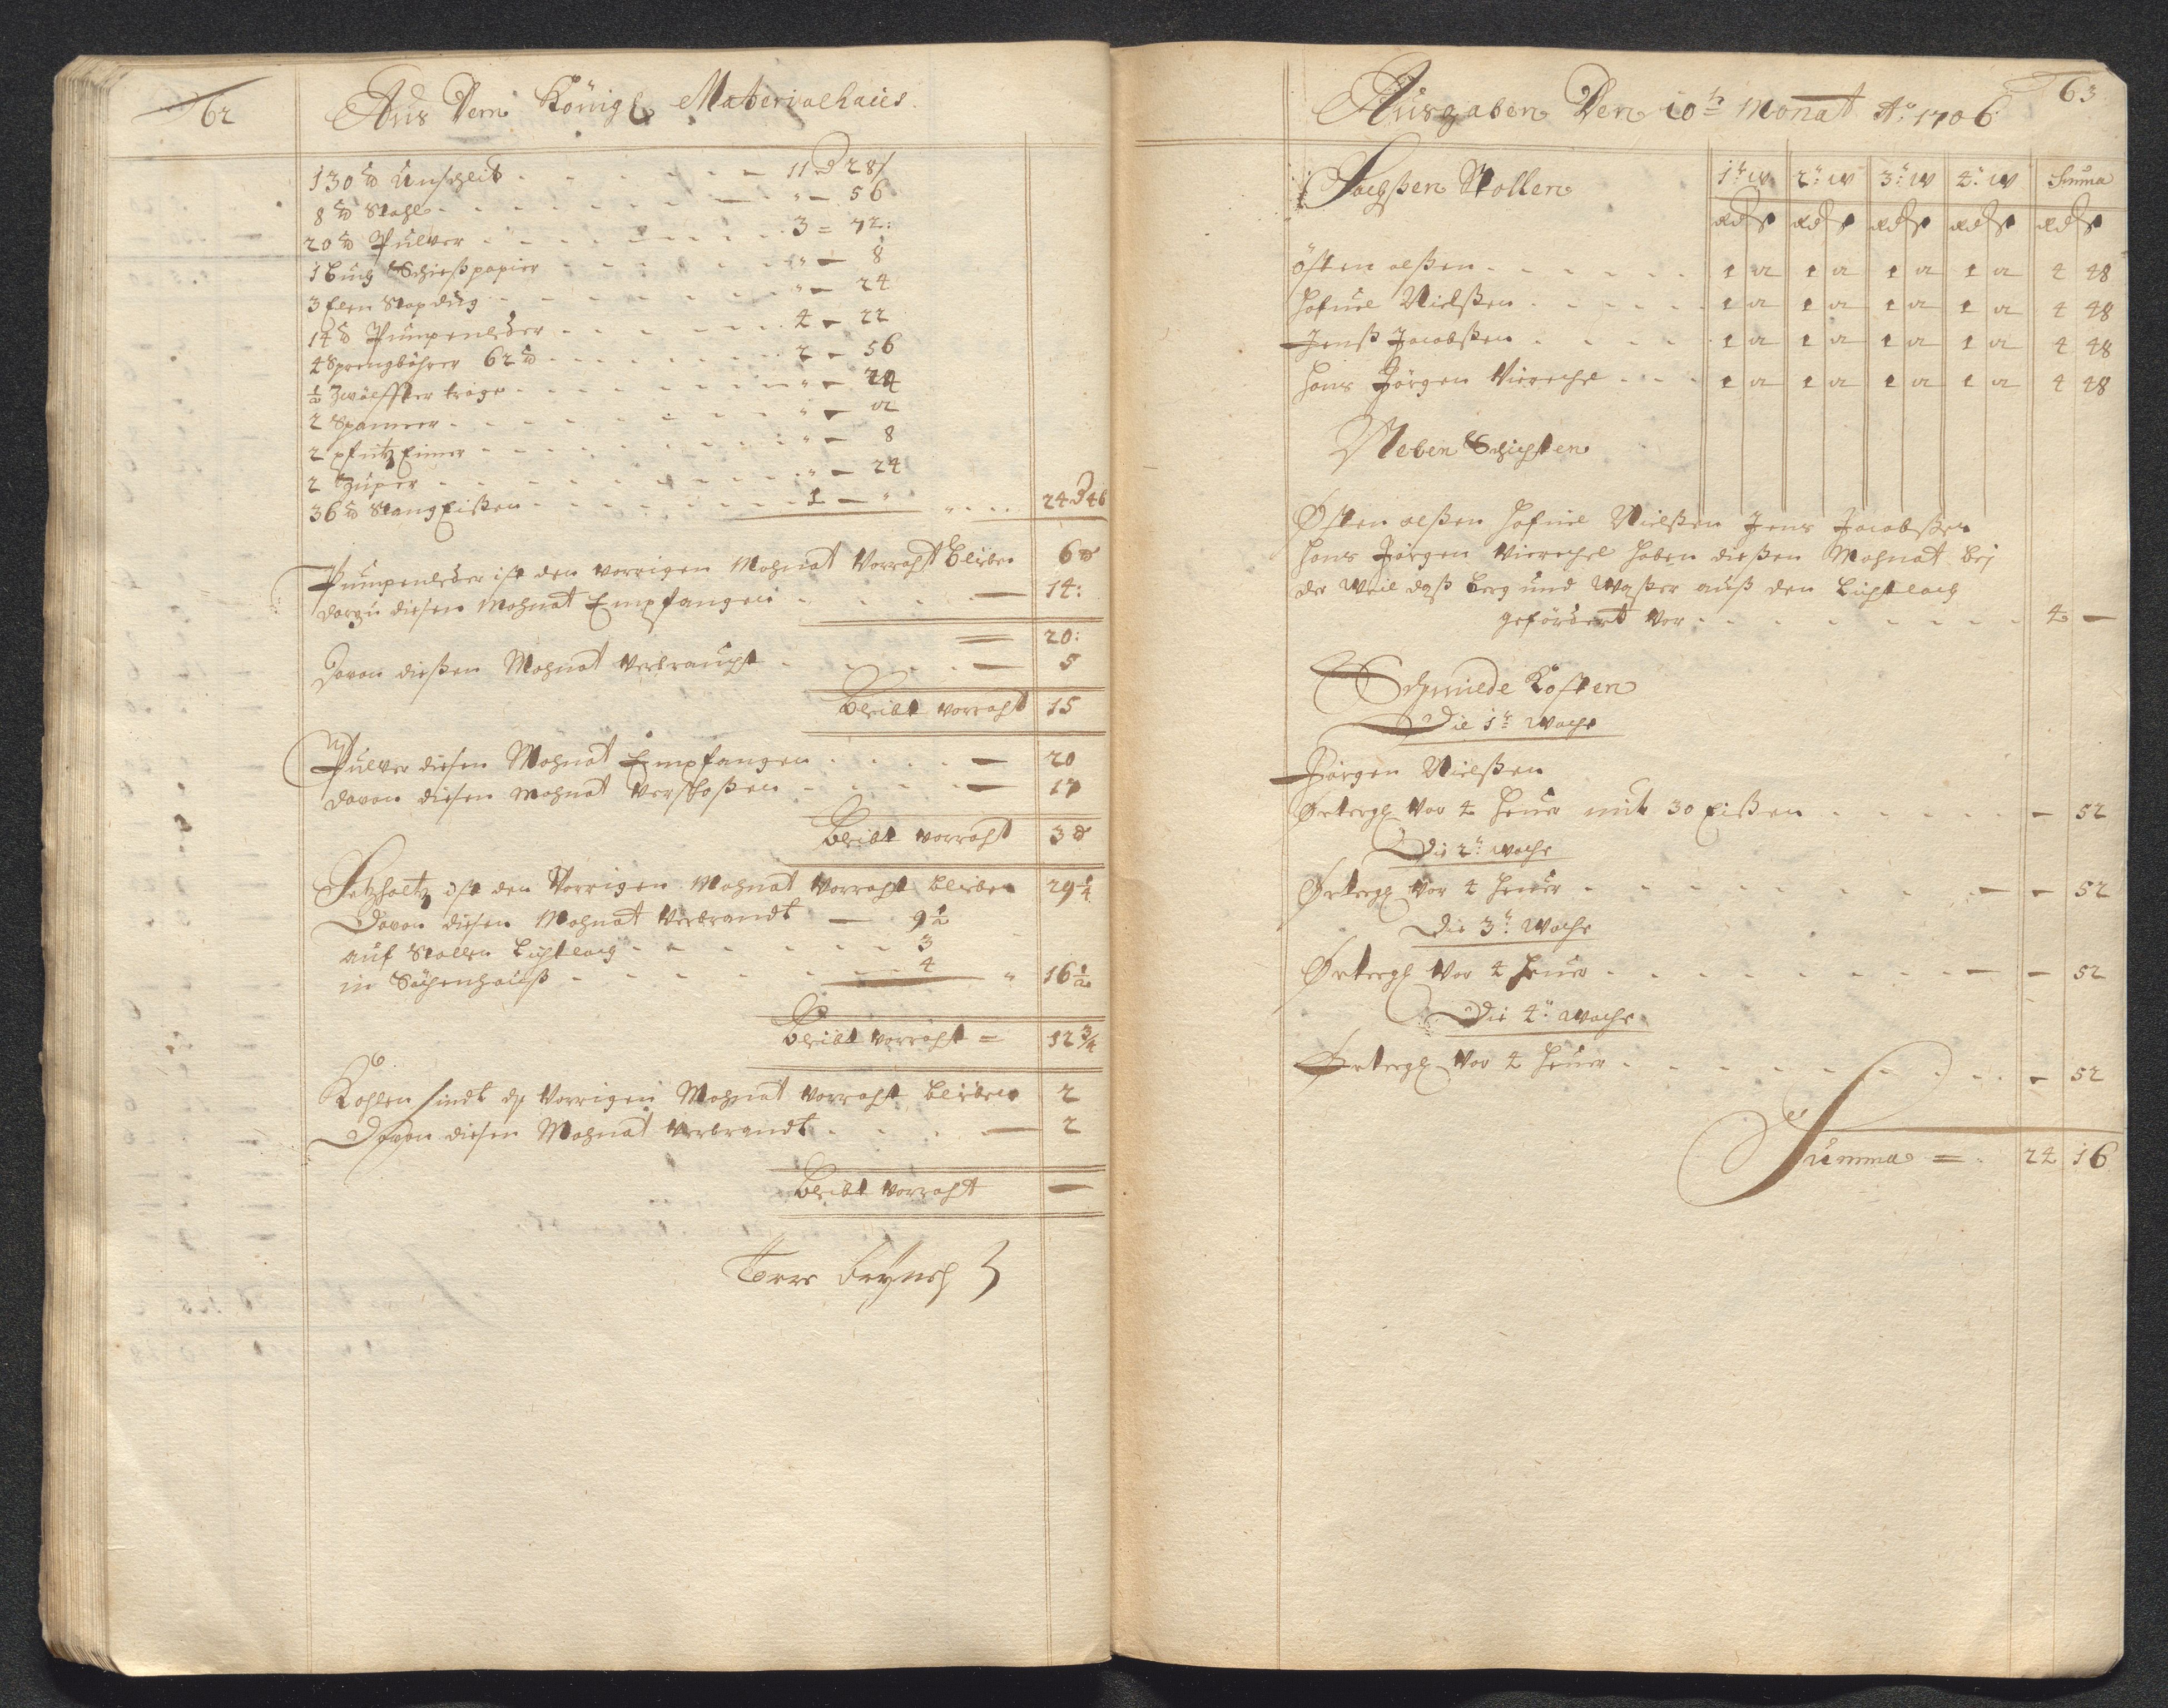 62
Aus Dem Königl Materialhaus.
130 ℔ Unschlit - - - - - 11 d 28 ß
8 ℔ Stahl - - - - - „ — 56
20 ℔ Pulver - - - - - 3 = 72:
1 Buch Schießpapier - - - - „ — 8
3 Elen - - - - „ — 24
14 ℔ Pumpenleder - - - - 4 — 22
4 Sprengböhrer 62 ℔ - - - - 2 — 56
½ Zwölffter tröge - - - - „ — 24
2 Spanner - - - - „ —
2 pfütz Eimer - - - - „ — 8
2 - - - - „ — 24
36 ℔ Stang Eißen - - - - 1 — „ „ - - 24 d 46
Pumpenleder ist den vorrigen Mohnat Vorraht blieben 6 ℔
darzu diesen Mohnat Empfangen - - - — 14:
20:
Davon dießen Mohnat Verbraucht - - - — 5
Bleibt vorraht 15
Pulver diesen Mohnat Empfangen - - - — 20
davon diesen Mohnat Verschoßen - - - — 17
Bleibt vorraht 3 ℔
Setzholtz ist den Vorrigen Mohnat Vorraht blieben 29¼
Davon diesen Mohnat Verbrandt — 9½
auf Stollen Lichtloch - - - - 3
in Sächenhauß - - - - 4 „ 16½
Bleibt vorraht = 12¾
Kohlen sindt Vorrigen Mohnat Vorraht blieben 2
Davon diesen Mohnat Verbrandt - - - — 2
Bleibt vorraht —
63
Ausgaben Den 10tr Monat Ao 1706
Sachßen Stollen 1tr W 2tr W 3tr W 4tr W Suma
Rd ß Rd ß Rd ß Rd ß Rd ß
Östen olßen - - - - 1 12 1 12 1 12 1 12 4 48
Hofuel Nielßen - - - - 1 12 1 12 1 12 1 12 4 48
Jenß Jacobßen - - - - 1 12 1 12 1 12 1 12 4 48
Hans Jörgen - - - 1 12 1 12 1 12 1 12 4 48
Neben Schichten
Östen olßen Hofuel Nielßen Jens Jacobßen
Hans Jörgen haben dießen Mohnat bej
der Weil daß berg und Waßer auß den Lichtloch
gefördert Vor - - - - - - 4 —
Schmiede Kosten
Die 1te Woche
Jörgen Nielßen
Vor 4 Heuer mit 30 Eißen - - - - — 52
Die 2te Woche
Vor 4 Heuer - - - - — 52
Die 3te Woche
Vor 4 Heuer - - - - — 52
Die 4te Woche
Vor 4 Heuer - - - - — 52
Summa = 24 16